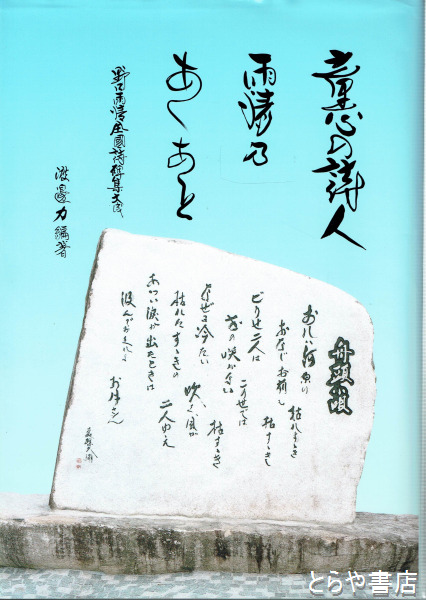 童心の詩人
雨情乃
あしあと
野口雨情全國詩碑集大成
渡邊力編著
舟頭唄
おれは河原の
枯れすゝき
おなじお前も
枯すゝき
どうせ二人は
この世では
花の咲かない
枯すゝき
なぜか冷たい
吹く風が
枯れたすゝきの
二人ゆえ
あつい涙が出たときは
汲んでおくれよ
お月さん
とらや書店